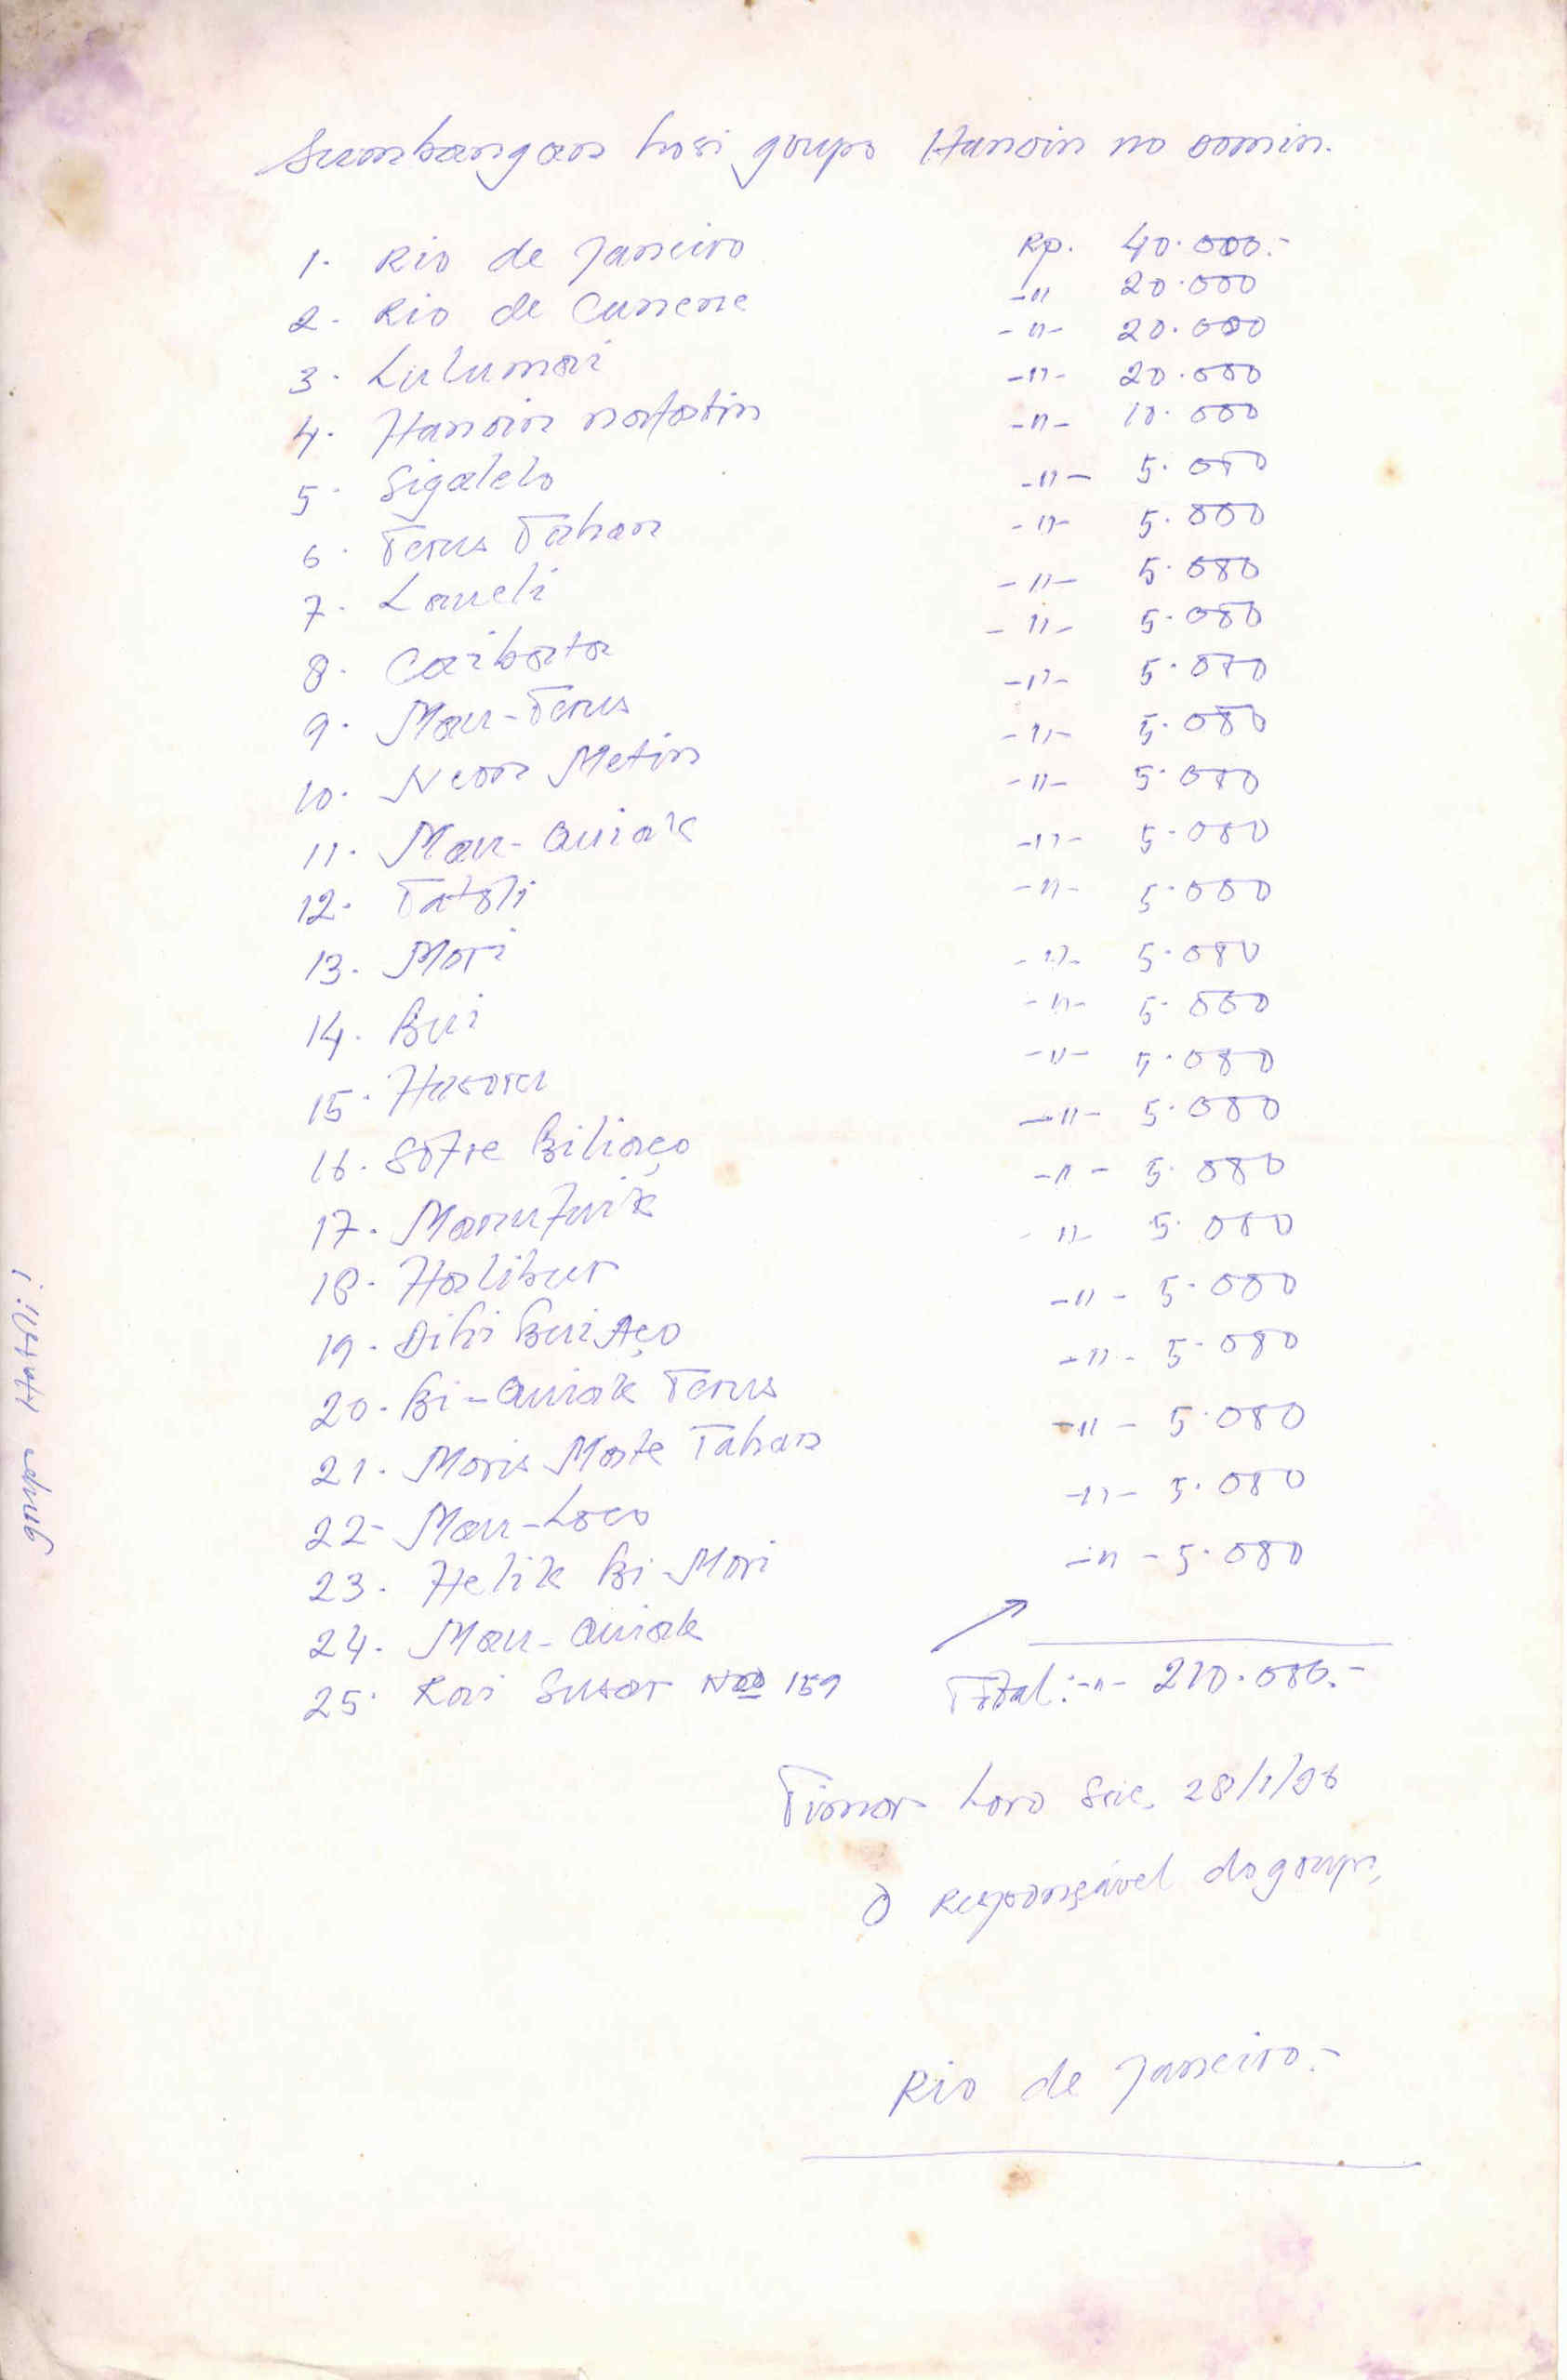 Sumbangan hosi grupo Hanoin no domin.
1. Rio de Janeiro Rp. 40.000.-
2. Rio de Cunene -"- 20.000
3. Lulumai -"- 20.000
4. Hanoin nafatin -"- 20.000
5. Sigalelo -"- 10.000
6. Terus Tahan -"- 5.000
7. Laueli -"- 5.000
8. Caibata -"- 5.000
9. Mau-Terus -"- 5.000
10. Neon Metin -"- 5.000
11. Mau-Quiak -"- 5.000
12. Tatoli -"- 5.000
13. Mori -"- 5.000
14. Bui -"- 5.000
15. Hasoru -"- 5.000
16. Sofre Biliaço -"- 5.000
17. Manufuik -"- 5.000
18. Halibur -"- 5.000
19. Dihi Bui Aço -"- 5.000
20. Bi-Quiak Terus -"- 5.000
21. Moris Mate Tahan -"- 5.000
22- Mau-Loco -"- 5.000
23. Helik Bi-Mori -"- 5.000
24. Mau-Quiak -"- 5.000
25. Rai Susar 159 -"- 5.000
Total:-"- 210.000.-
Timor Loro Sae, 28/1/96
O Responsável do grupo,
Rio de Janeiro.-
grupo Hatoli!